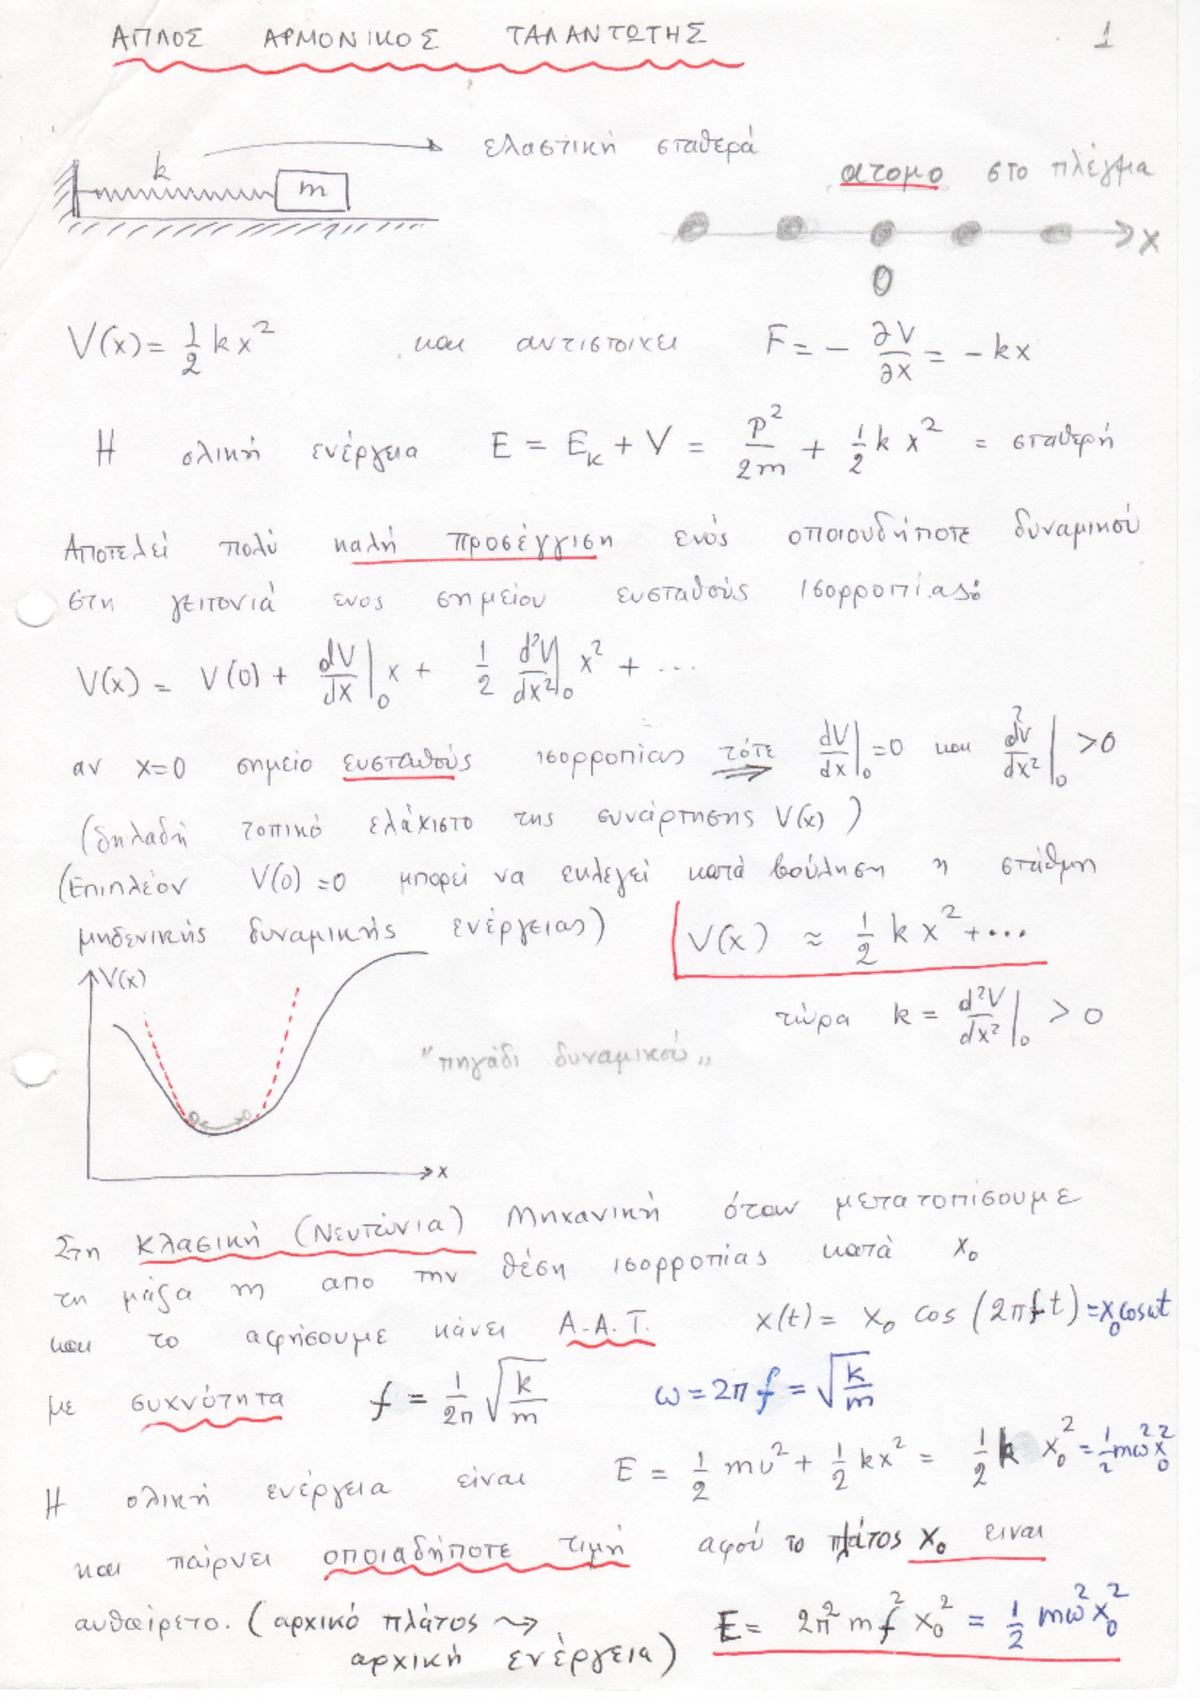 ΑΠΛΟΣ ΑΡΜΟΝΙΚΟΣ ΤΑΛΑΝΤΩΤΗΣ 1
k ελαστική σταθερά
m
ατομο στο πλέγμα
x
0
V(x) = 1/2 k x² και αντιστοιχει F = - ∂V/∂x = - kx
Η ολική ενέργεια E = E_K + V = P²/2m + 1/2 k x² = σταθερή
Αποτελεί πολύ καλή προσέγγιση ενός οποιουδήποτε δυναμικού
στη γειτονιά ενος σημείου ευσταθούς ισορροπίας:
V(x) = V(0) + dV/dx|₀ x + 1/2 d²V/dx²|₀ x² + ...
αν x=0 σημείο ευσταθούς ισορροπίας τότε dV/dx|₀ =0 και d²V/dx²|₀ >0
(δηλαδή τοπικό ελάχιστο της συνάρτησης V(x) )
(Επιπλέον V(0)=0 μπορεί να εκλεγεί κατά βούληση η στάθμη
μηδενικής δυναμικής ενέργειας) V(x) ≈ 1/2 k x² + ...
V(x)
τώρα k = d²V/dx²|₀ > 0
"πηγάδι δυναμικού"
x
Στη Κλασική (Νευτώνια) Μηχανική όταν μετατοπίσουμε
τη μάζα m απο την θέση ισορροπίας κατά x₀
και το αφήσουμε κάνει Α.Α.Τ. x(t) = x₀ cos (2πft) = x₀cosωt
με συχνότητα f = 1/2π √k/m ω = 2πf = √k/m
Η ολική ενέργεια είναι E = 1/2 mυ² + 1/2 kx² = 1/2 k x₀² = 1/2 mω²x₀²
και παίρνει οποιαδήποτε τιμή αφού το πλάτος x₀ ειναι
αυθαίρετο. (αρχικό πλάτος ⇝
αρχική ενέργεια) E = 2π² m f² x₀² = 1/2 mω²x₀²